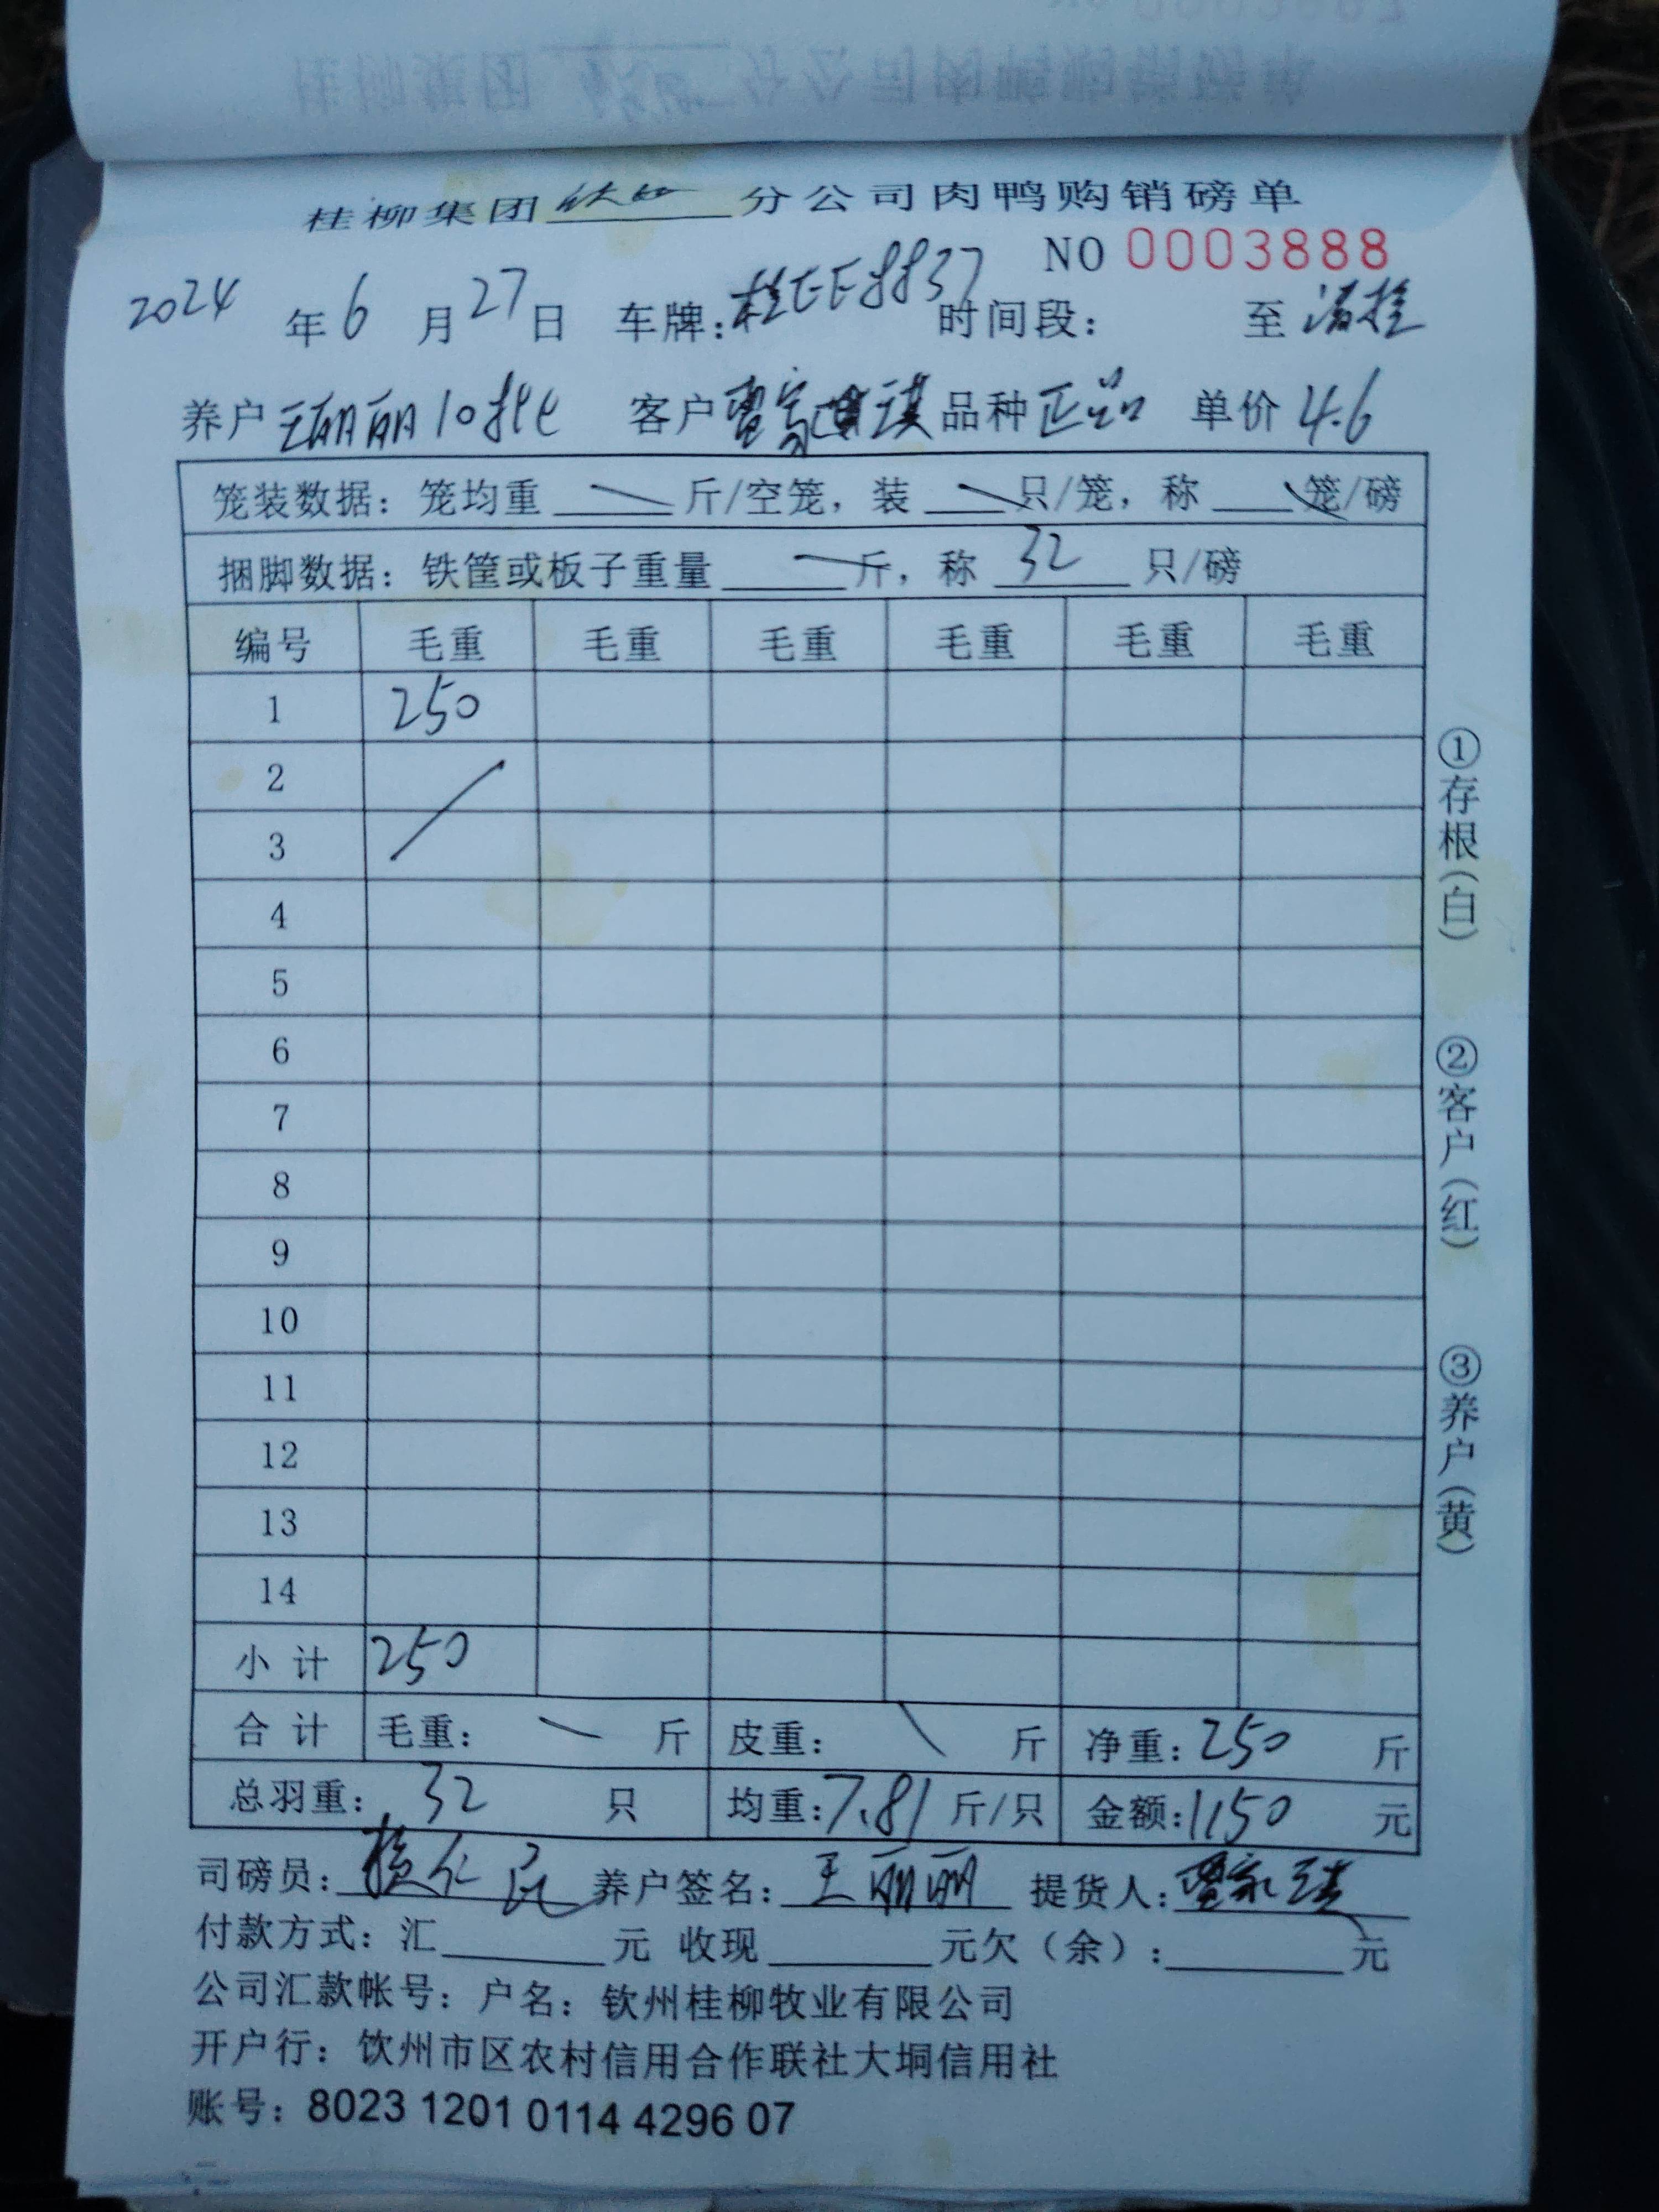 桂柳集团 分公司肉鸭购销磅单
NO 0003888
2024年6月27日 车牌:桂EE8837 时间段: 至
养户 王丽丽10批 客户 品种 正品 单价 4.6
笼装数据:笼均重 斤/空笼,装 只/笼,称 笼/磅
捆脚数据:铁筐或板子重量 斤,称 32 只/磅
编号 毛重 毛重 毛重 毛重 毛重 毛重
1 250
2
3
4
5
6
7
8
9
10
11
12
13
14
小计 250
合计 毛重: 斤 皮重: 斤 净重:250 斤
总羽重:32 只 均重:7.81 斤/只 金额:1150 元
司磅员: 养户签名:王丽丽 提货人:
付款方式:汇 元 收现 元欠(余): 元
公司汇款帐号:户名:钦州桂柳牧业有限公司
开户行:钦州市区农村信用合作联社大垌信用社
账号:8023 1201 0114 4296 07
①存根(白) ②客户(红) ③养户(黄)